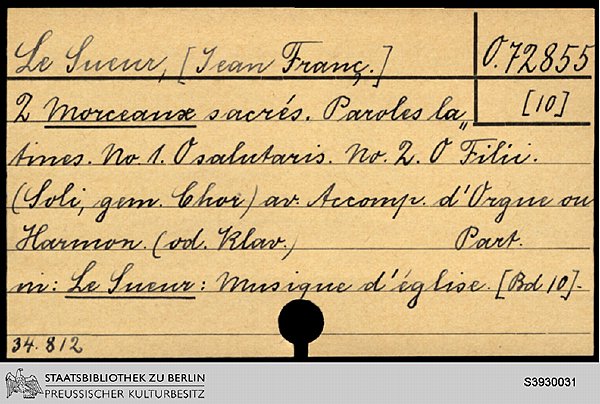 Le Sueur, [Jean Franç.]
O.72855
[10]
2 Morceaux sacrés. Paroles la„
tines. No. 1. O salutaris. No. 2. O Filii.
(Soli, gem. Chor) av. Accomp. d'Orgue ou
Harmon. (od. Klav.) Part.
in: Le Sueur: Musique d'église. [Bd 10].
34.812
STAATSBIBLIOTHEK ZU BERLIN
PREUSSISCHER KULTURBESITZ
S3930031